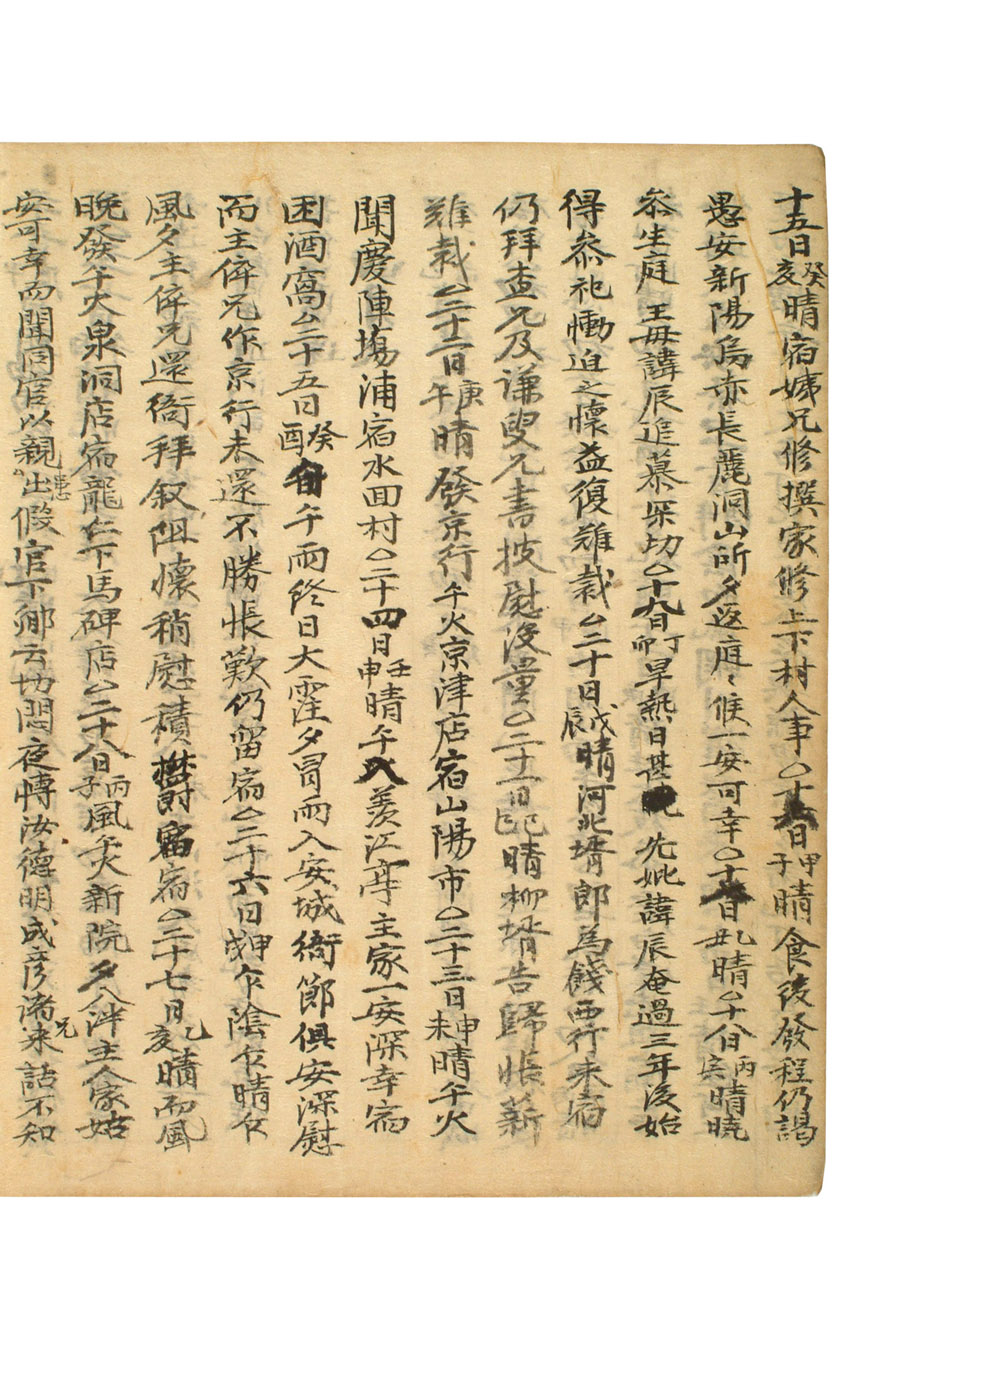 十五日癸亥晴宿姨兄修撰家修上下村人事○十六日甲子晴食後發程仍謁
愚安新陽烏赤長麗洞山所夕返庭〻候一安可幸○十七日乙丑晴○十八日丙寅晴曉
叅生庭王母諱辰追慕深切○十九日丁卯旱熱日甚 先妣諱辰奄過三年後始
得叅祀慟迫之懷益復難裁○二十日戊辰晴河北壻郎爲餞西行来宿
仍拜查兄及謙叟兄書披慰沒量○二十一日己巳晴柳壻告歸悵薪
難裁○二十二日庚午晴發京行午火京津店宿山陽市○二十三日辛未晴午火
聞慶陣塲浦宿水回村○二十四日壬申晴午入羡江亭主家一安深幸宿
困酒窩○二十五日癸酉 午雨終日大霔夕冒雨入安城衙節俱安深慰
而主倅兄作京行未還不勝悵歎仍留宿○二十六日甲戌乍陰乍晴乍
風夕主倅兄還衙拜叙阻懷稍慰積欝留宿○二十七日乙亥晴而風
晚發午火泉洞店宿龍仁下馬碑店○二十八日丙子風午火新院夕入泮主人家姑
安可幸而聞同官以親患出假官下鄕云切悶夜博汝德明成彦渚兄来話不知